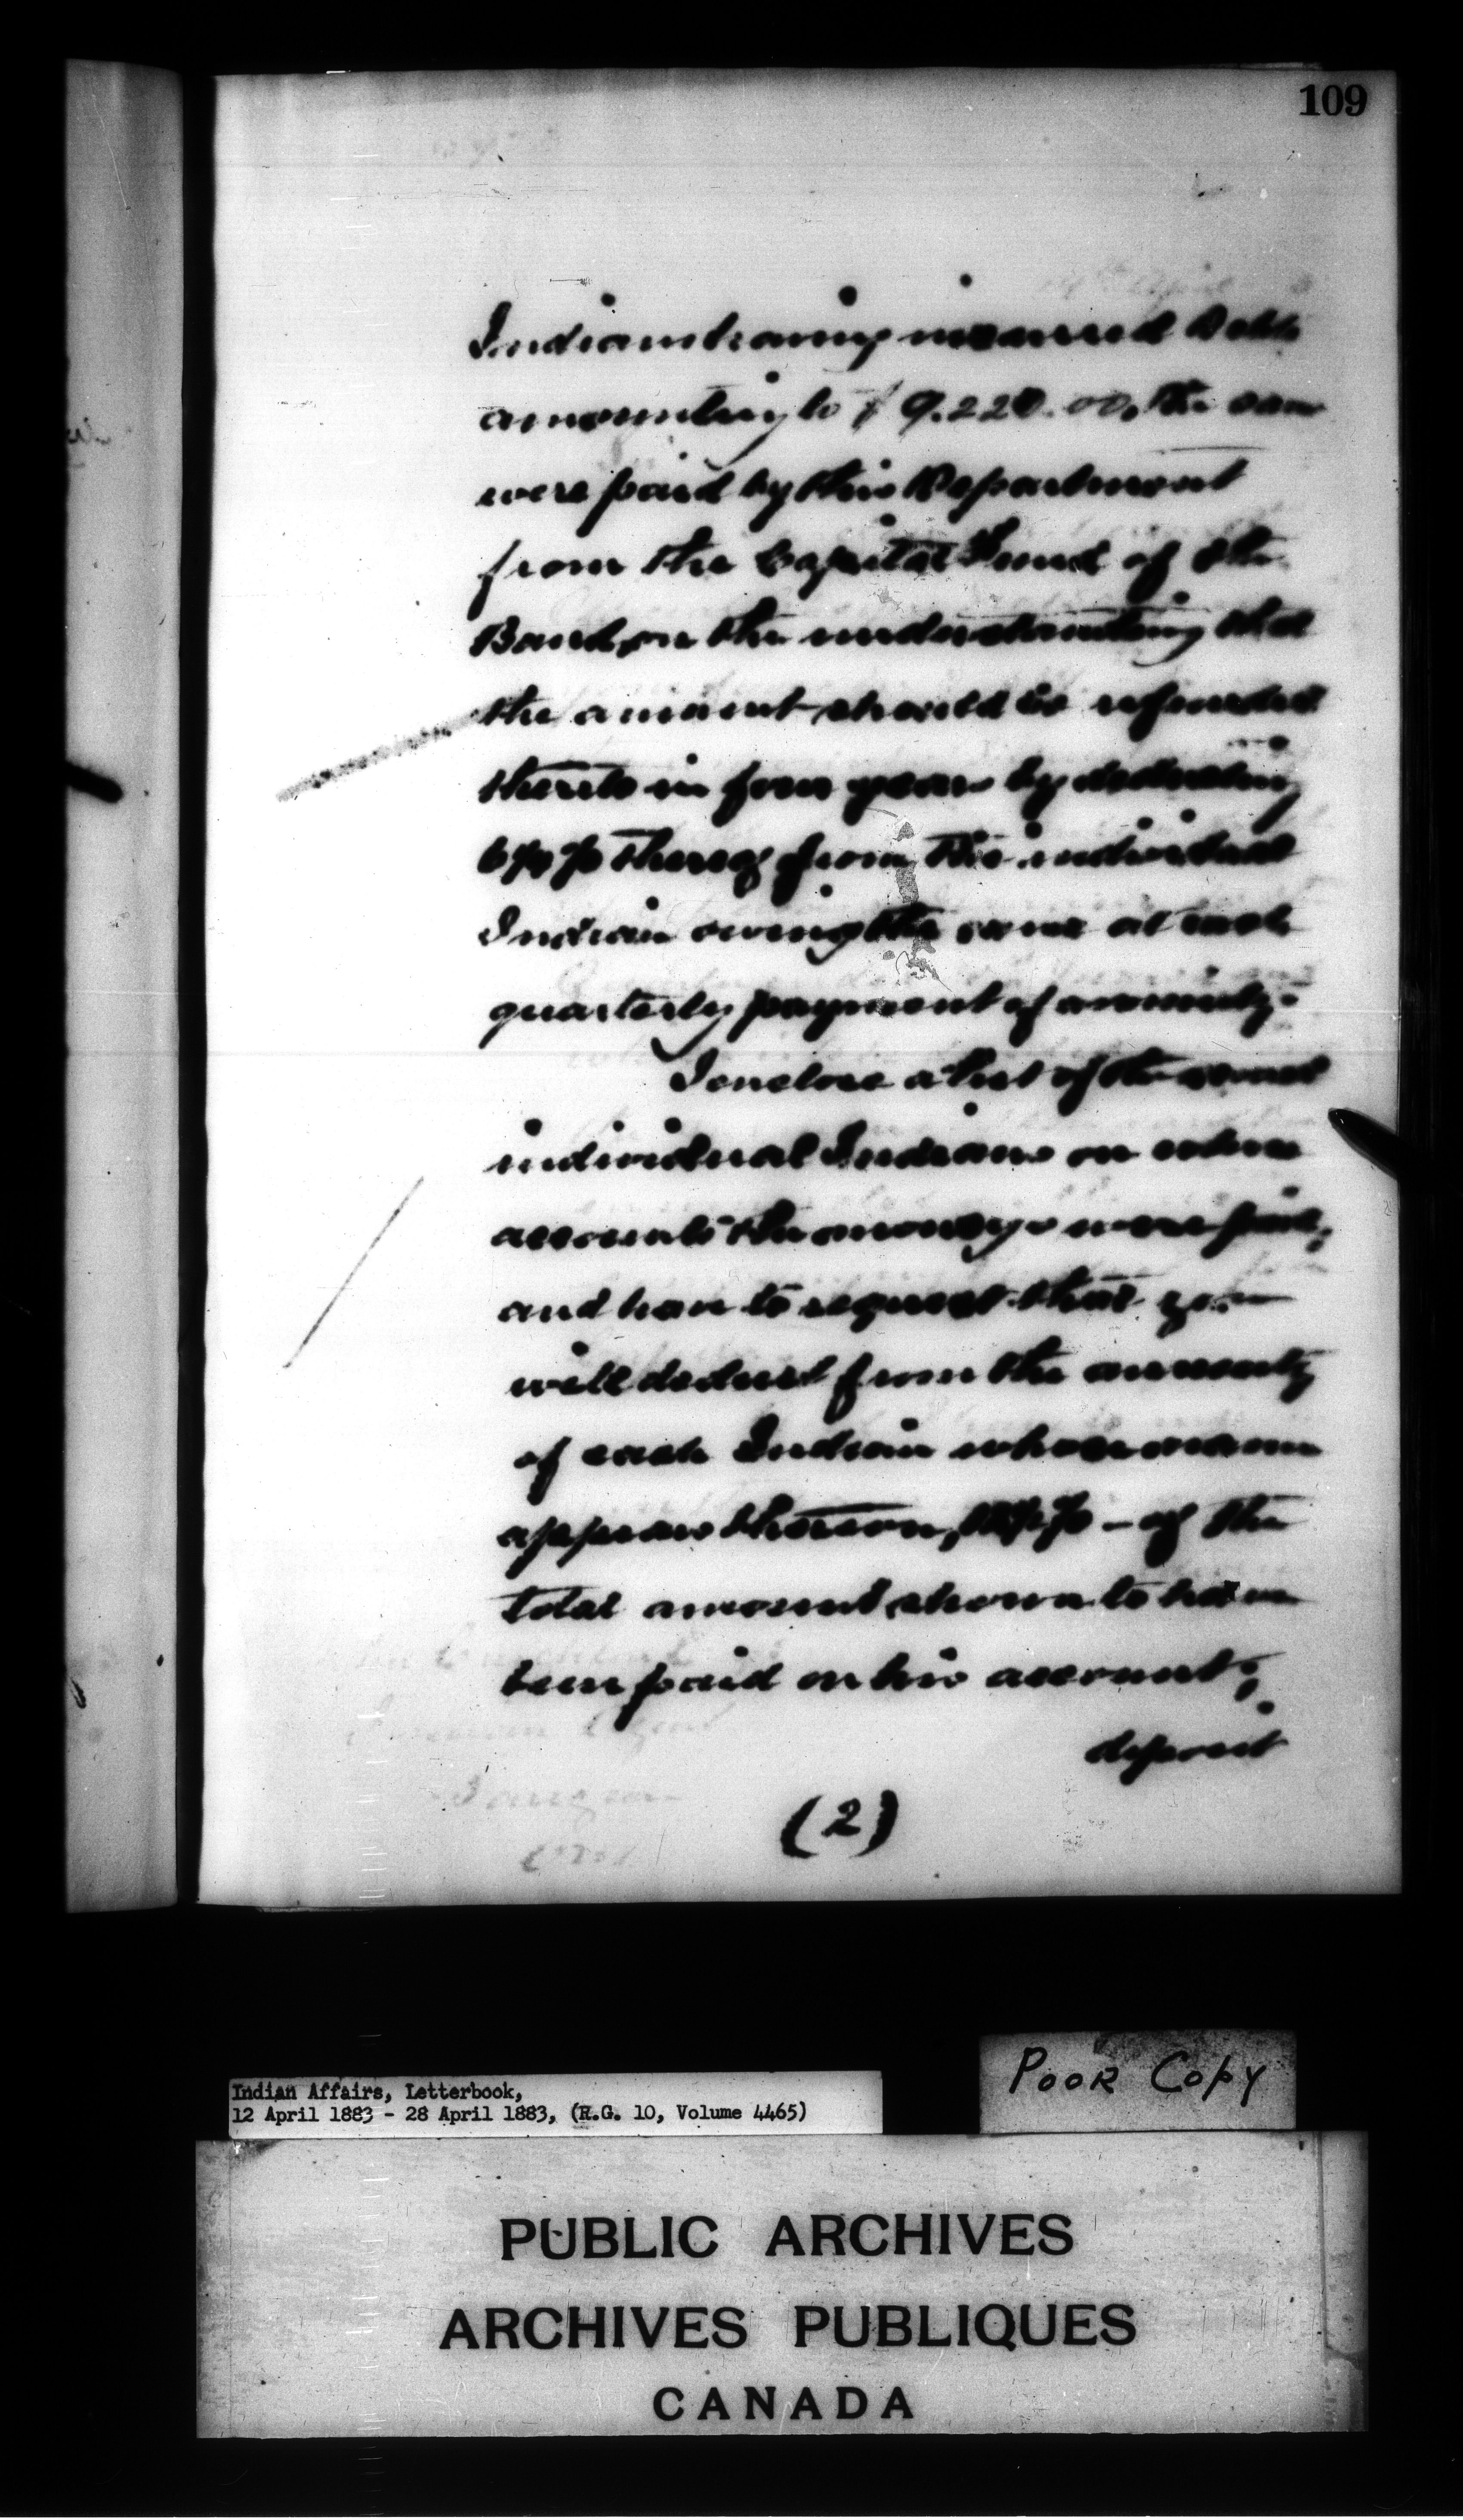 109
Indians having incurred debts
amounting to $ 9.220.00, the same
were paid by this Department
from the Capital Fund of the
Band, on the understanding that
the amount should be refunded
thereto in four years by deducting
thereof from the individual
Indian owing the same at each
quarterly payment of annuity.
I enclose a list of the
individual Indians on whose
accounts the moneys were paid,
and have to request that you
will deduct from the annuity
of each Indian whose name
appears thereon, of the
total amount shown to have
been paid on his account;
deposit
(2)
POOR COPY
Indian Affairs, Letterbook,
12 April 1883 - 28 April 1883, (R.G. 10, Volume 4465)
PUBLIC ARCHIVES
ARCHIVES PUBLIQUES
CANADA